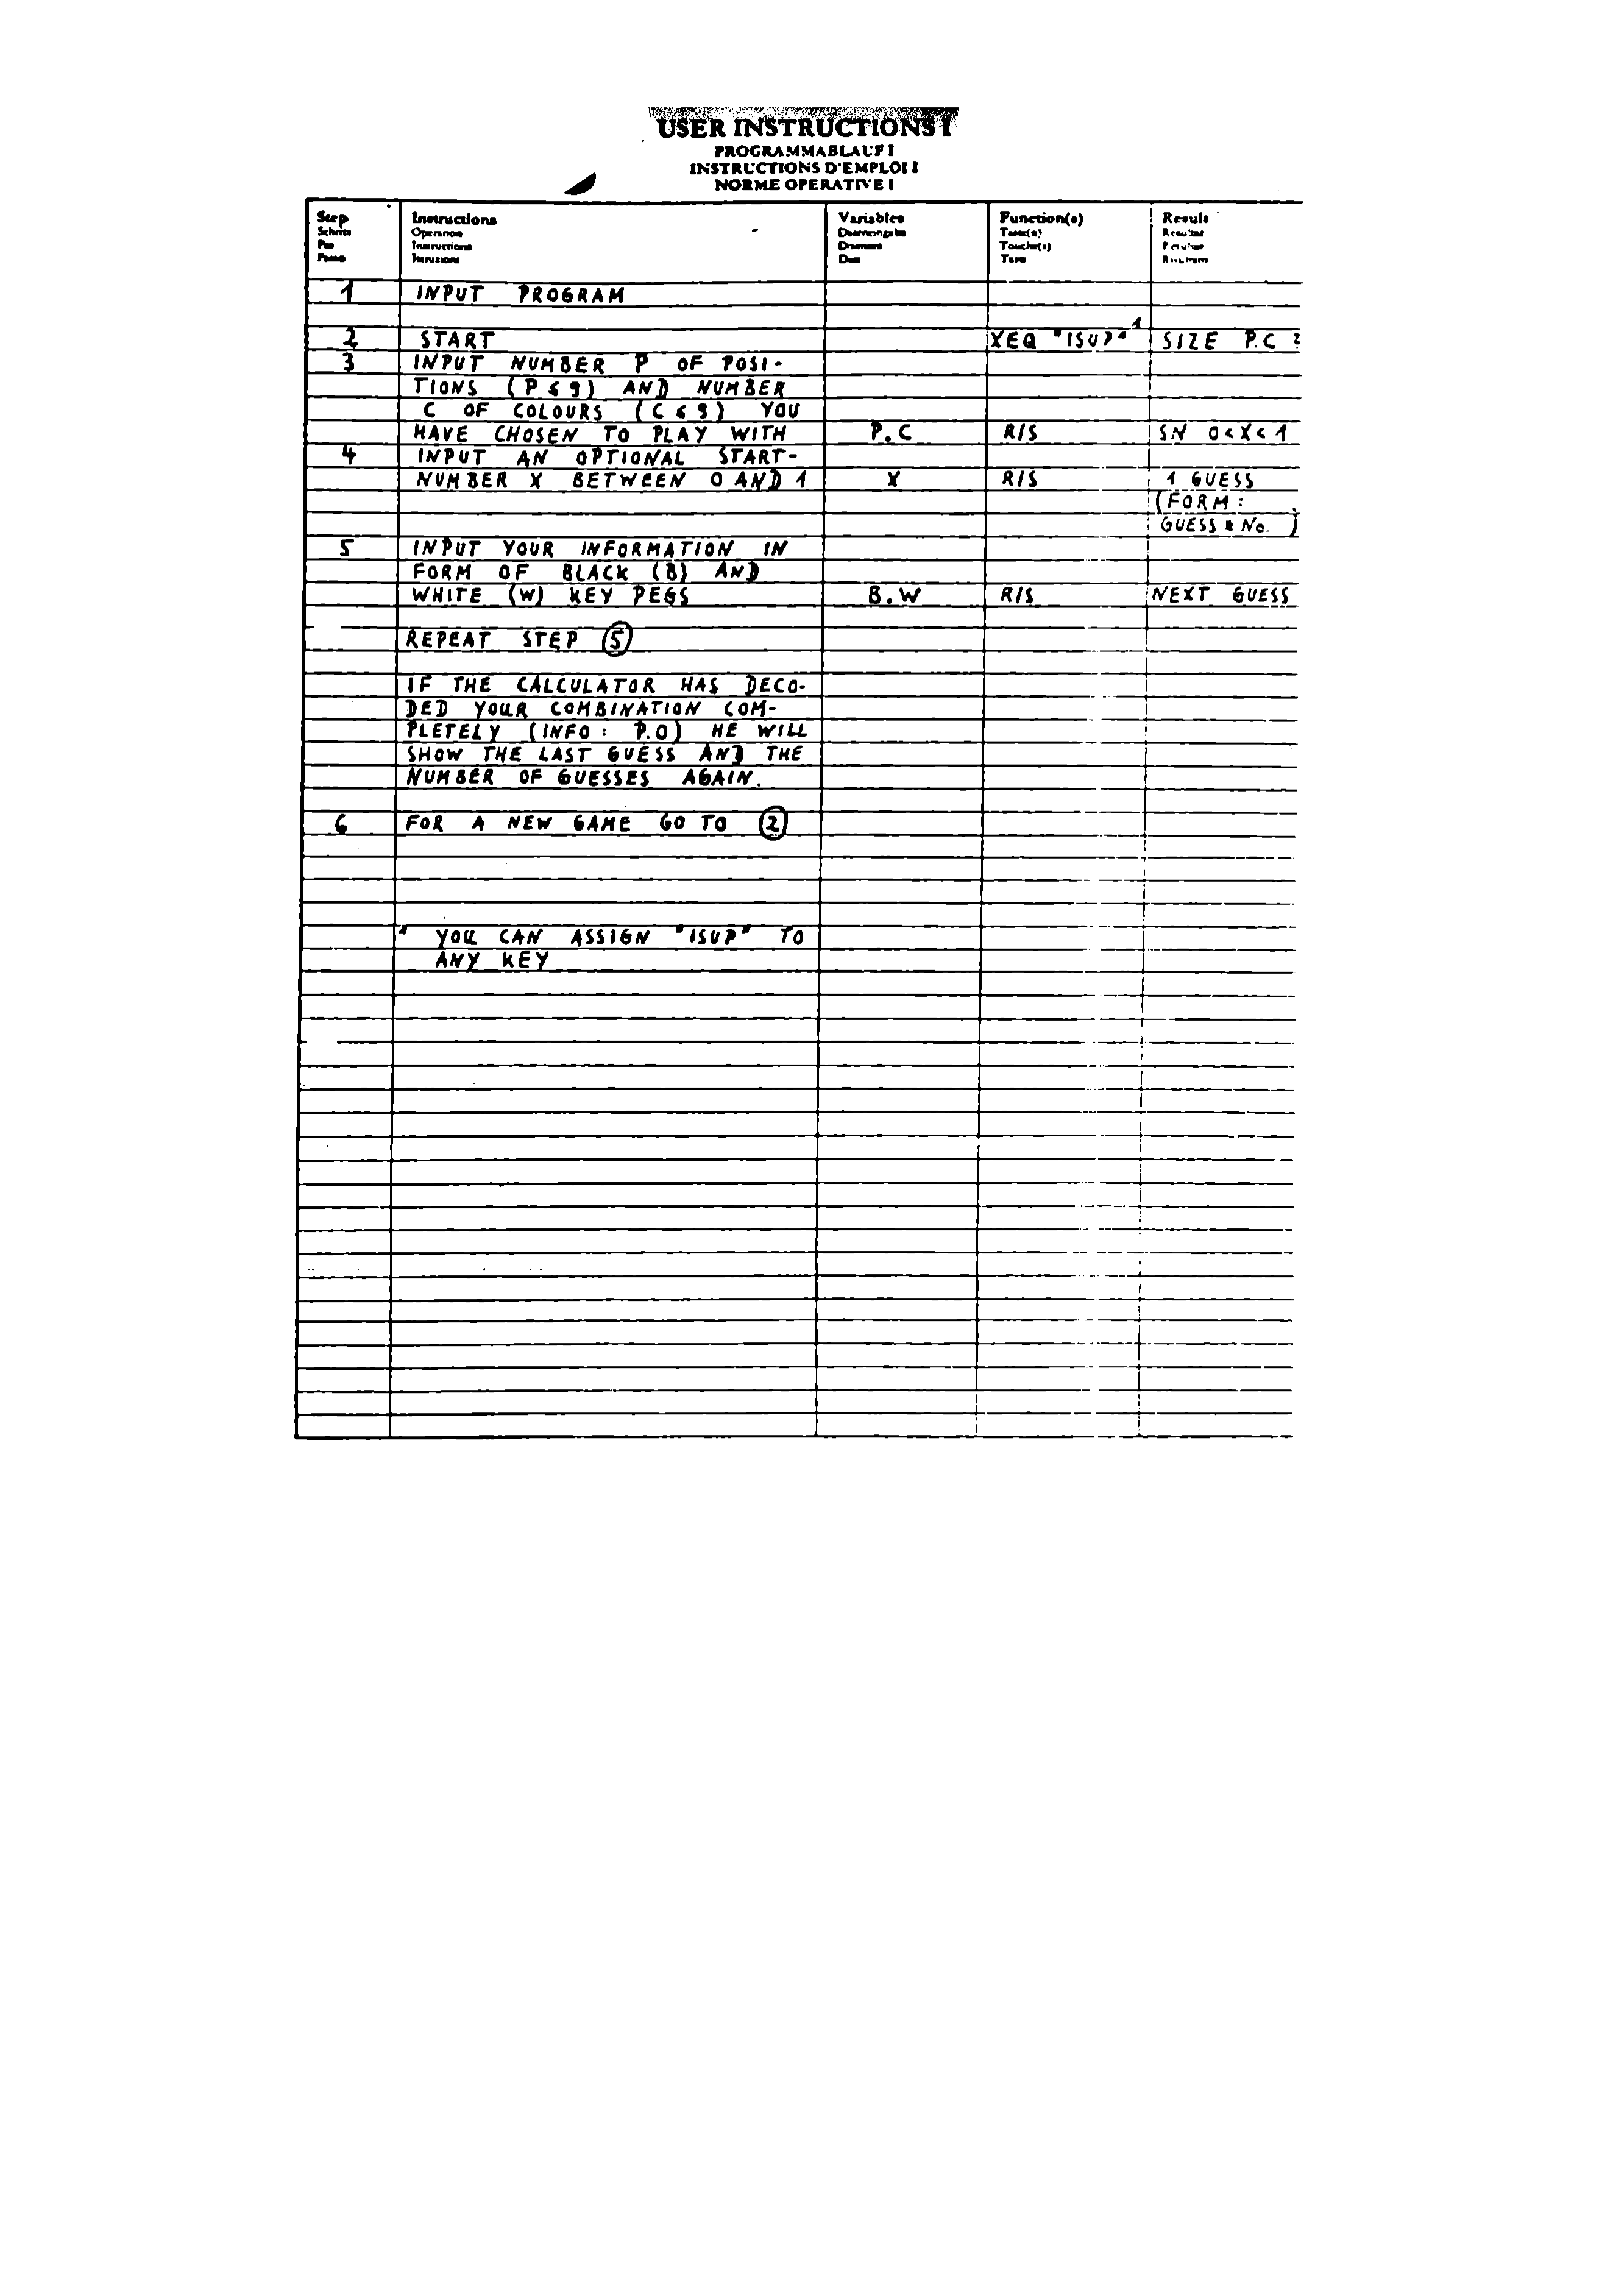 USER INSTRUCTIONS I
PROGRAMMABLAUF I
INSTRUCTIONS D'EMPLOI I
NORME OPERATIVE I
Step Instructions Variables Function(s) Result
Instructions Touche(s)
1 INPUT PROGRAM
2 START XEQ "ISUP" 1 SIZE P.C ?
3 INPUT NUMBER P OF POSI-
TIONS (P ≤ 9) AND NUMBER
C OF COLOURS (C ≤ 9) YOU
HAVE CHOSEN TO PLAY WITH P.C R/S SN 0<X<1
4 INPUT AN OPTIONAL START-
NUMBER X BETWEEN 0 AND 1 X R/S 1 GUESS
(FORM :
GUESS * No. )
5 INPUT YOUR INFORMATION IN
FORM OF BLACK (B) AND
WHITE (W) KEY PEGS B.W R/S NEXT GUESS
REPEAT STEP 5
IF THE CALCULATOR HAS DECO-
DED YOUR COMBINATION COM-
PLETELY (INFO : P.0) HE WILL
SHOW THE LAST GUESS AND THE
NUMBER OF GUESSES AGAIN.
6 FOR A NEW GAME GO TO 2
YOU CAN ASSIGN "ISUP" TO
ANY KEY